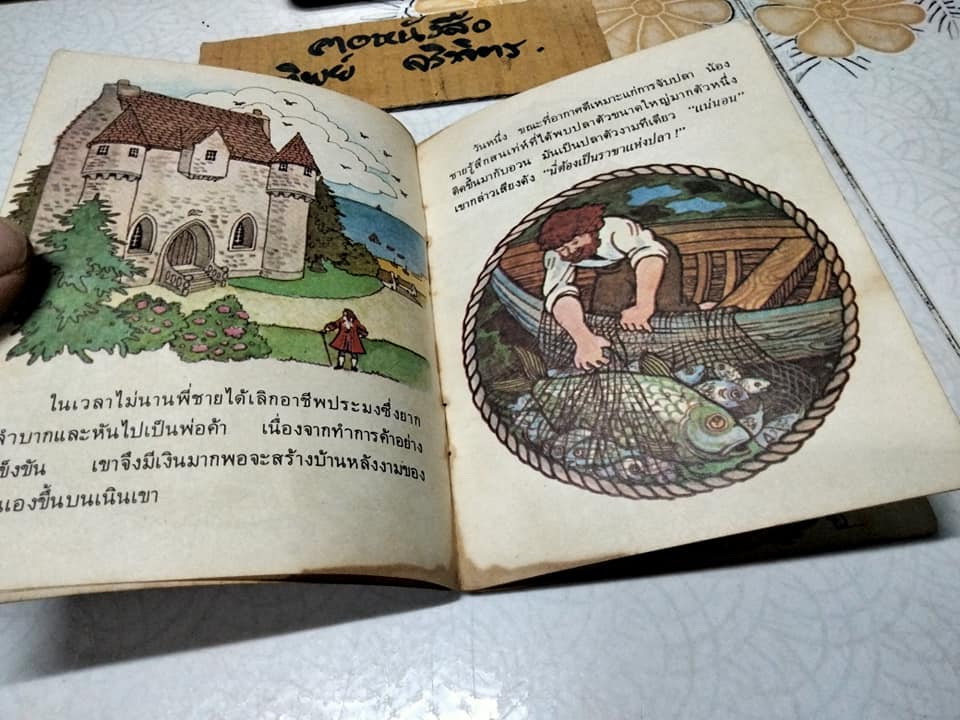 ในเวลาไม่นานพี่ชายได้เลิกอาชีพประมงซึ่งยาก
ลำบากและหันไปเป็นพ่อค้า เนื่องจากทำการค้าอย่าง
แข็งขัน เขาจึงมีเงินมากพอจะสร้างบ้านหลังงามของ
นเองขึ้นบนเนินเขา
วันหนึ่ง ขณะที่อากาศดีเหมาะแก่การจับปลา น้อง
ชายรู้สึกสนเท่ห์ที่ได้พบปลาตัวขนาดใหญ่มากตัวหนึ่ง
ติดขึ้นมากับอวน มันเป็นปลาตัวงามทีเดียว "แน่นอน"
เขากล่าวเสียงดัง "นี่ต้องเป็นราชาแห่งปลา !"